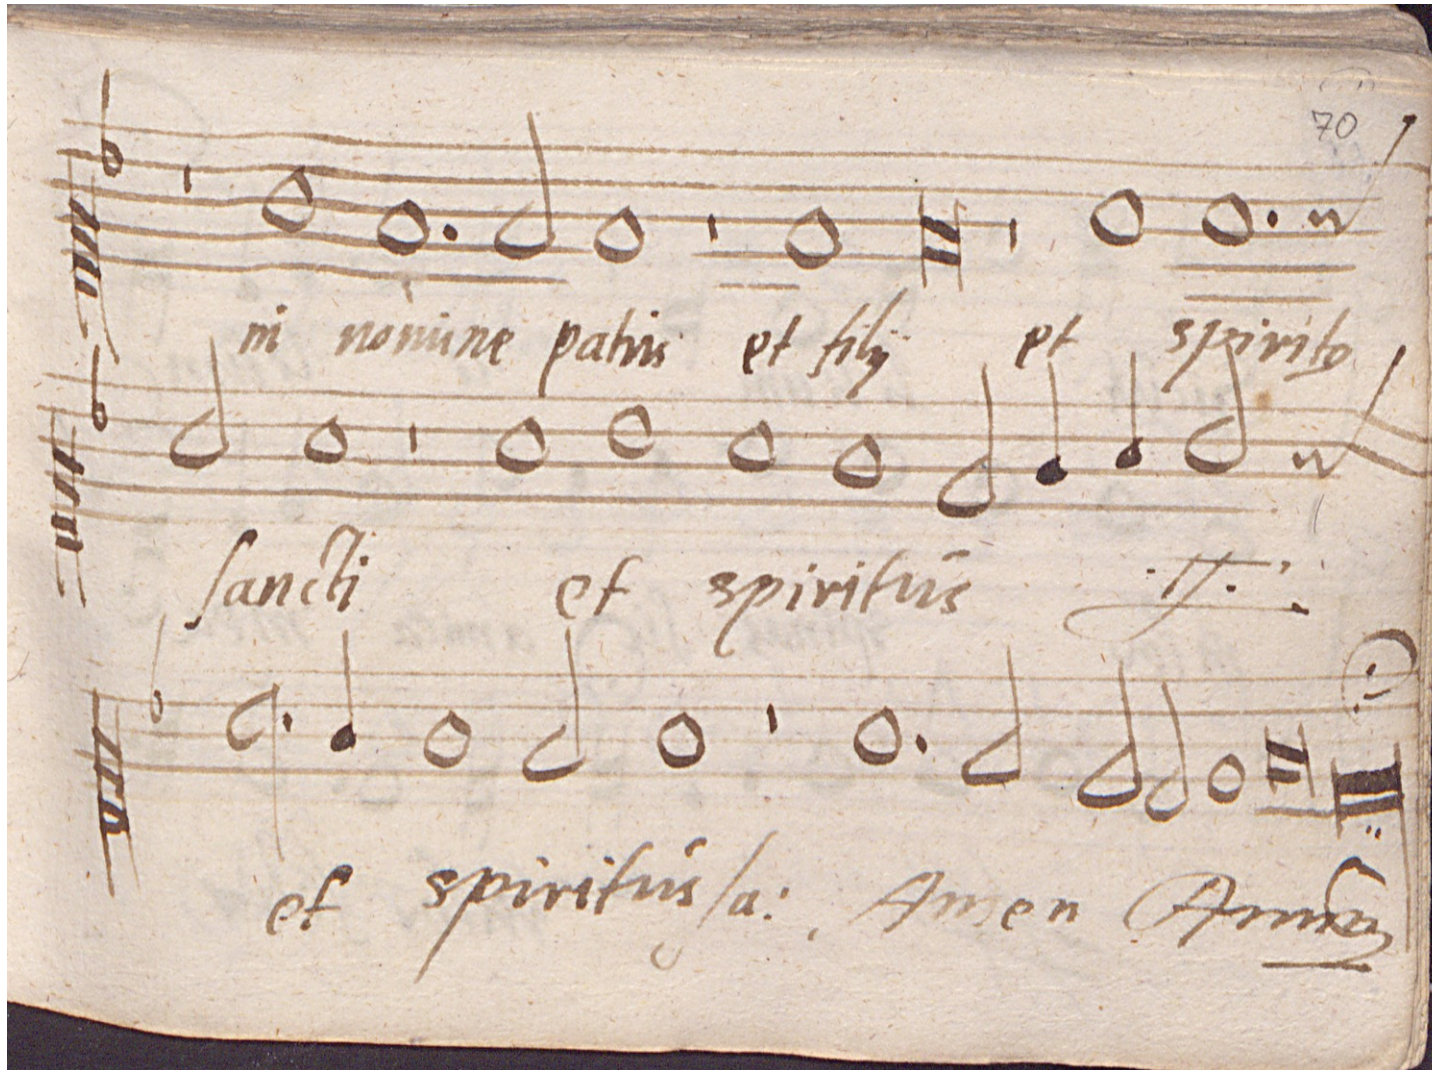 70
in nomine patris et filij et spirito
sancti et spiritus .ij.
et spiritus sa: Amen Amen